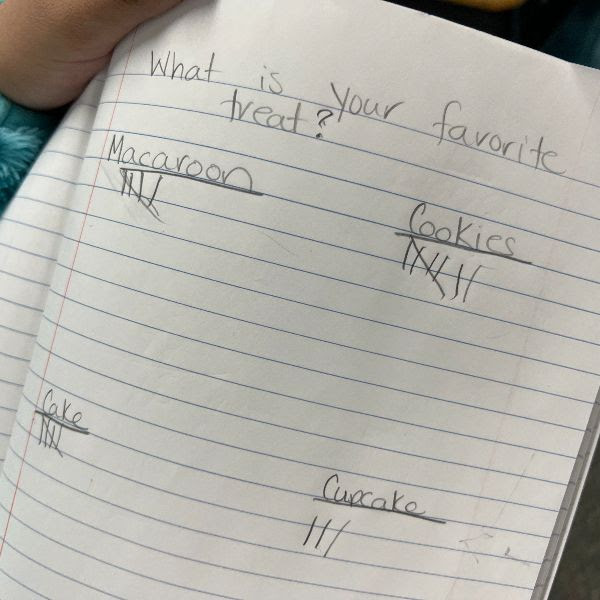 What is your favorite
treat?
Macaroon
Cookies
Cake
Cupcake